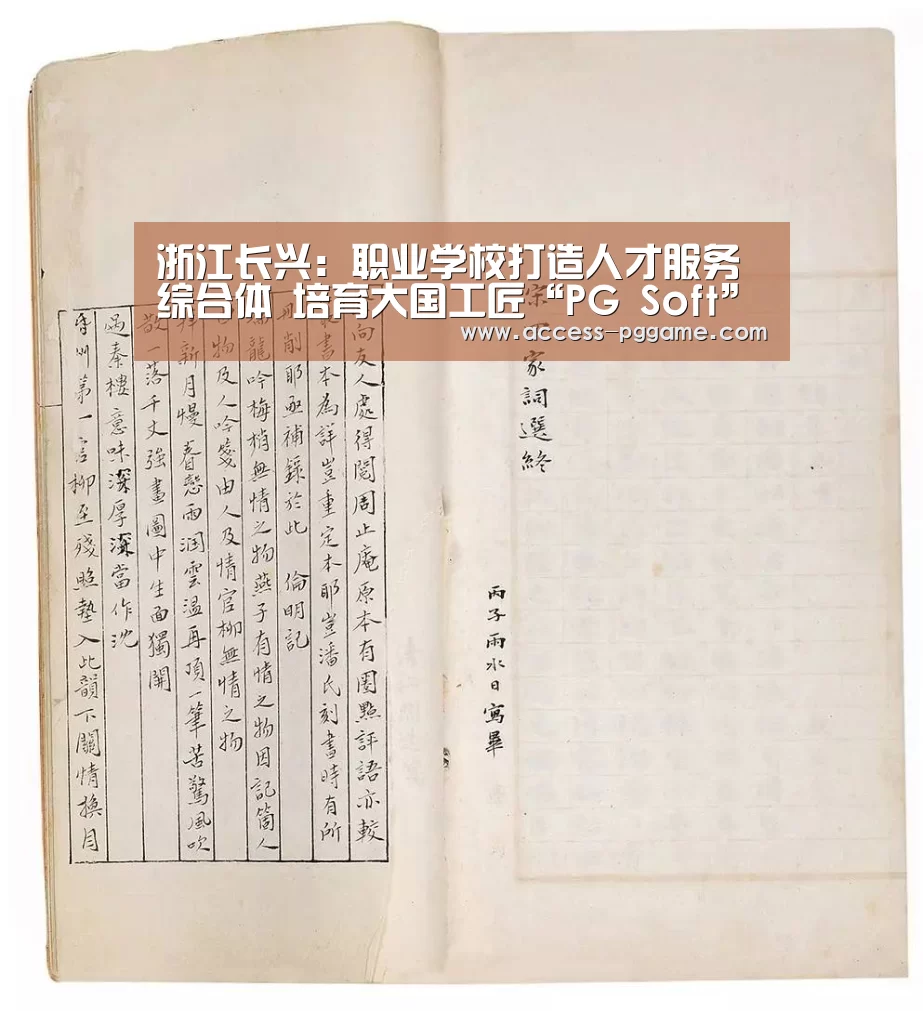 浙江长兴：职业学校打造人才服务
综合体 培育大国工匠“PG Soft”
www.access-pggame.com
家詞選終
丙子雨水日寫畢
向友人處得閱周止庵原本有圈點評語亦較
書本為詳豈重定本耶豈潘氏刻書時有所
削耶亟補錄於此 倫明記
龍吟梅梢無情之物燕子有情之物因記箇人
物及人吟箋由人及情官柳無情之物
新月慢 眷戀雨潤雲溫再項一筆苦驚風吹
散一落千丈強畫圖中生面獨開
過秦樓意味深厚深當作沈
第一言柳至殘照墊入此韻下關情換月